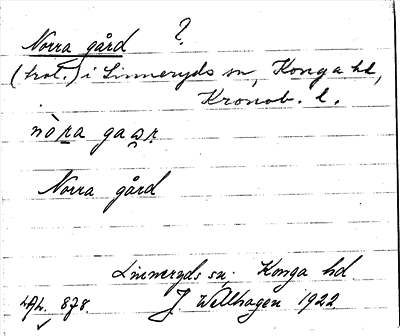 Norra gård ?
(trol.) i Linneryds sn, Konga hd,
Kronob. l.
Norra gård
Linneryds sn. Konga hd.
LAL. 878. J Wellhagen 1922